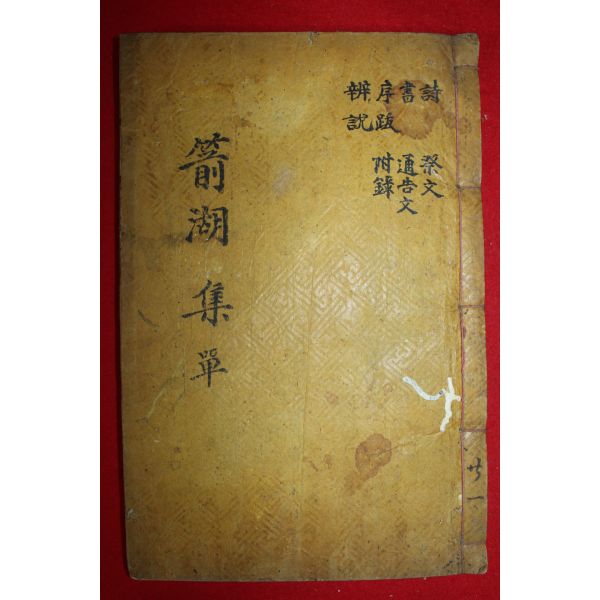 詩 祭文
書 通告文
序跋 附錄
辨說
箭湖集單
共一